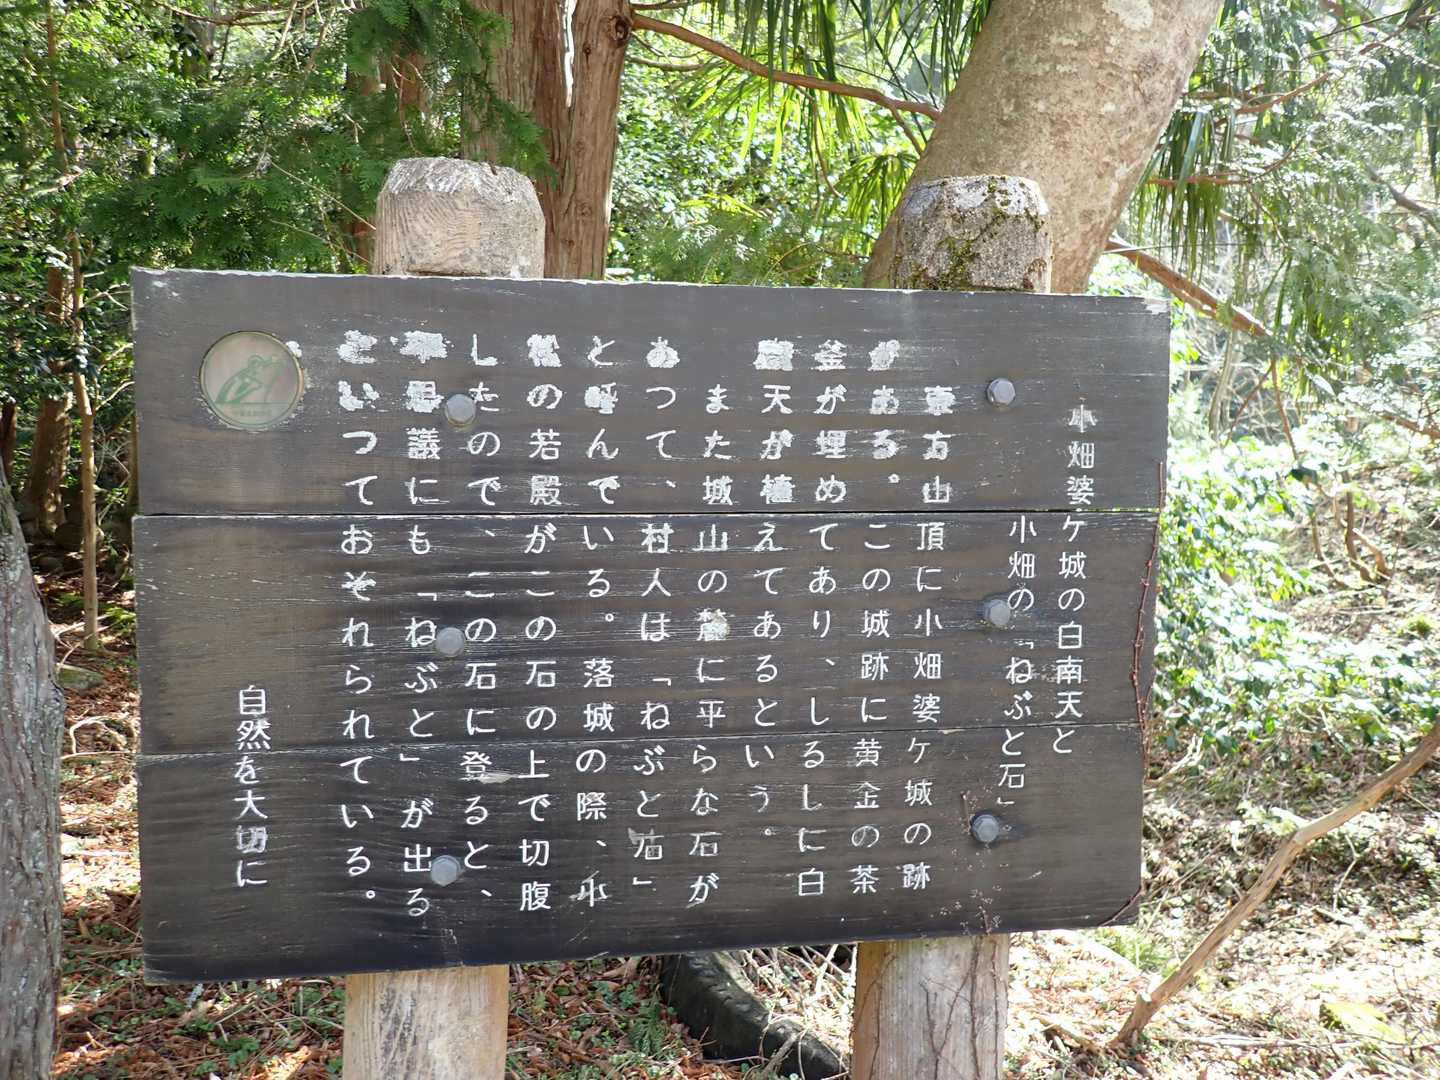 小畑婆ケ城の白南天と
小畑の「ねぶと石」
東方山頂に小畑婆ケ城の跡
がある。この城跡に黄金の茶
釜が埋めてあり、しるしに白
南天が植えてあるという。
また城山の麓に平らな石が
あつて、村人は「ねぶと石」
と呼んでいる。落城の際、小
畑の若殿がこの石の上で切腹
したので、この石に登ると、
不思議にも「ねぶと」が出る
といつておそれられている。
自然を大切に